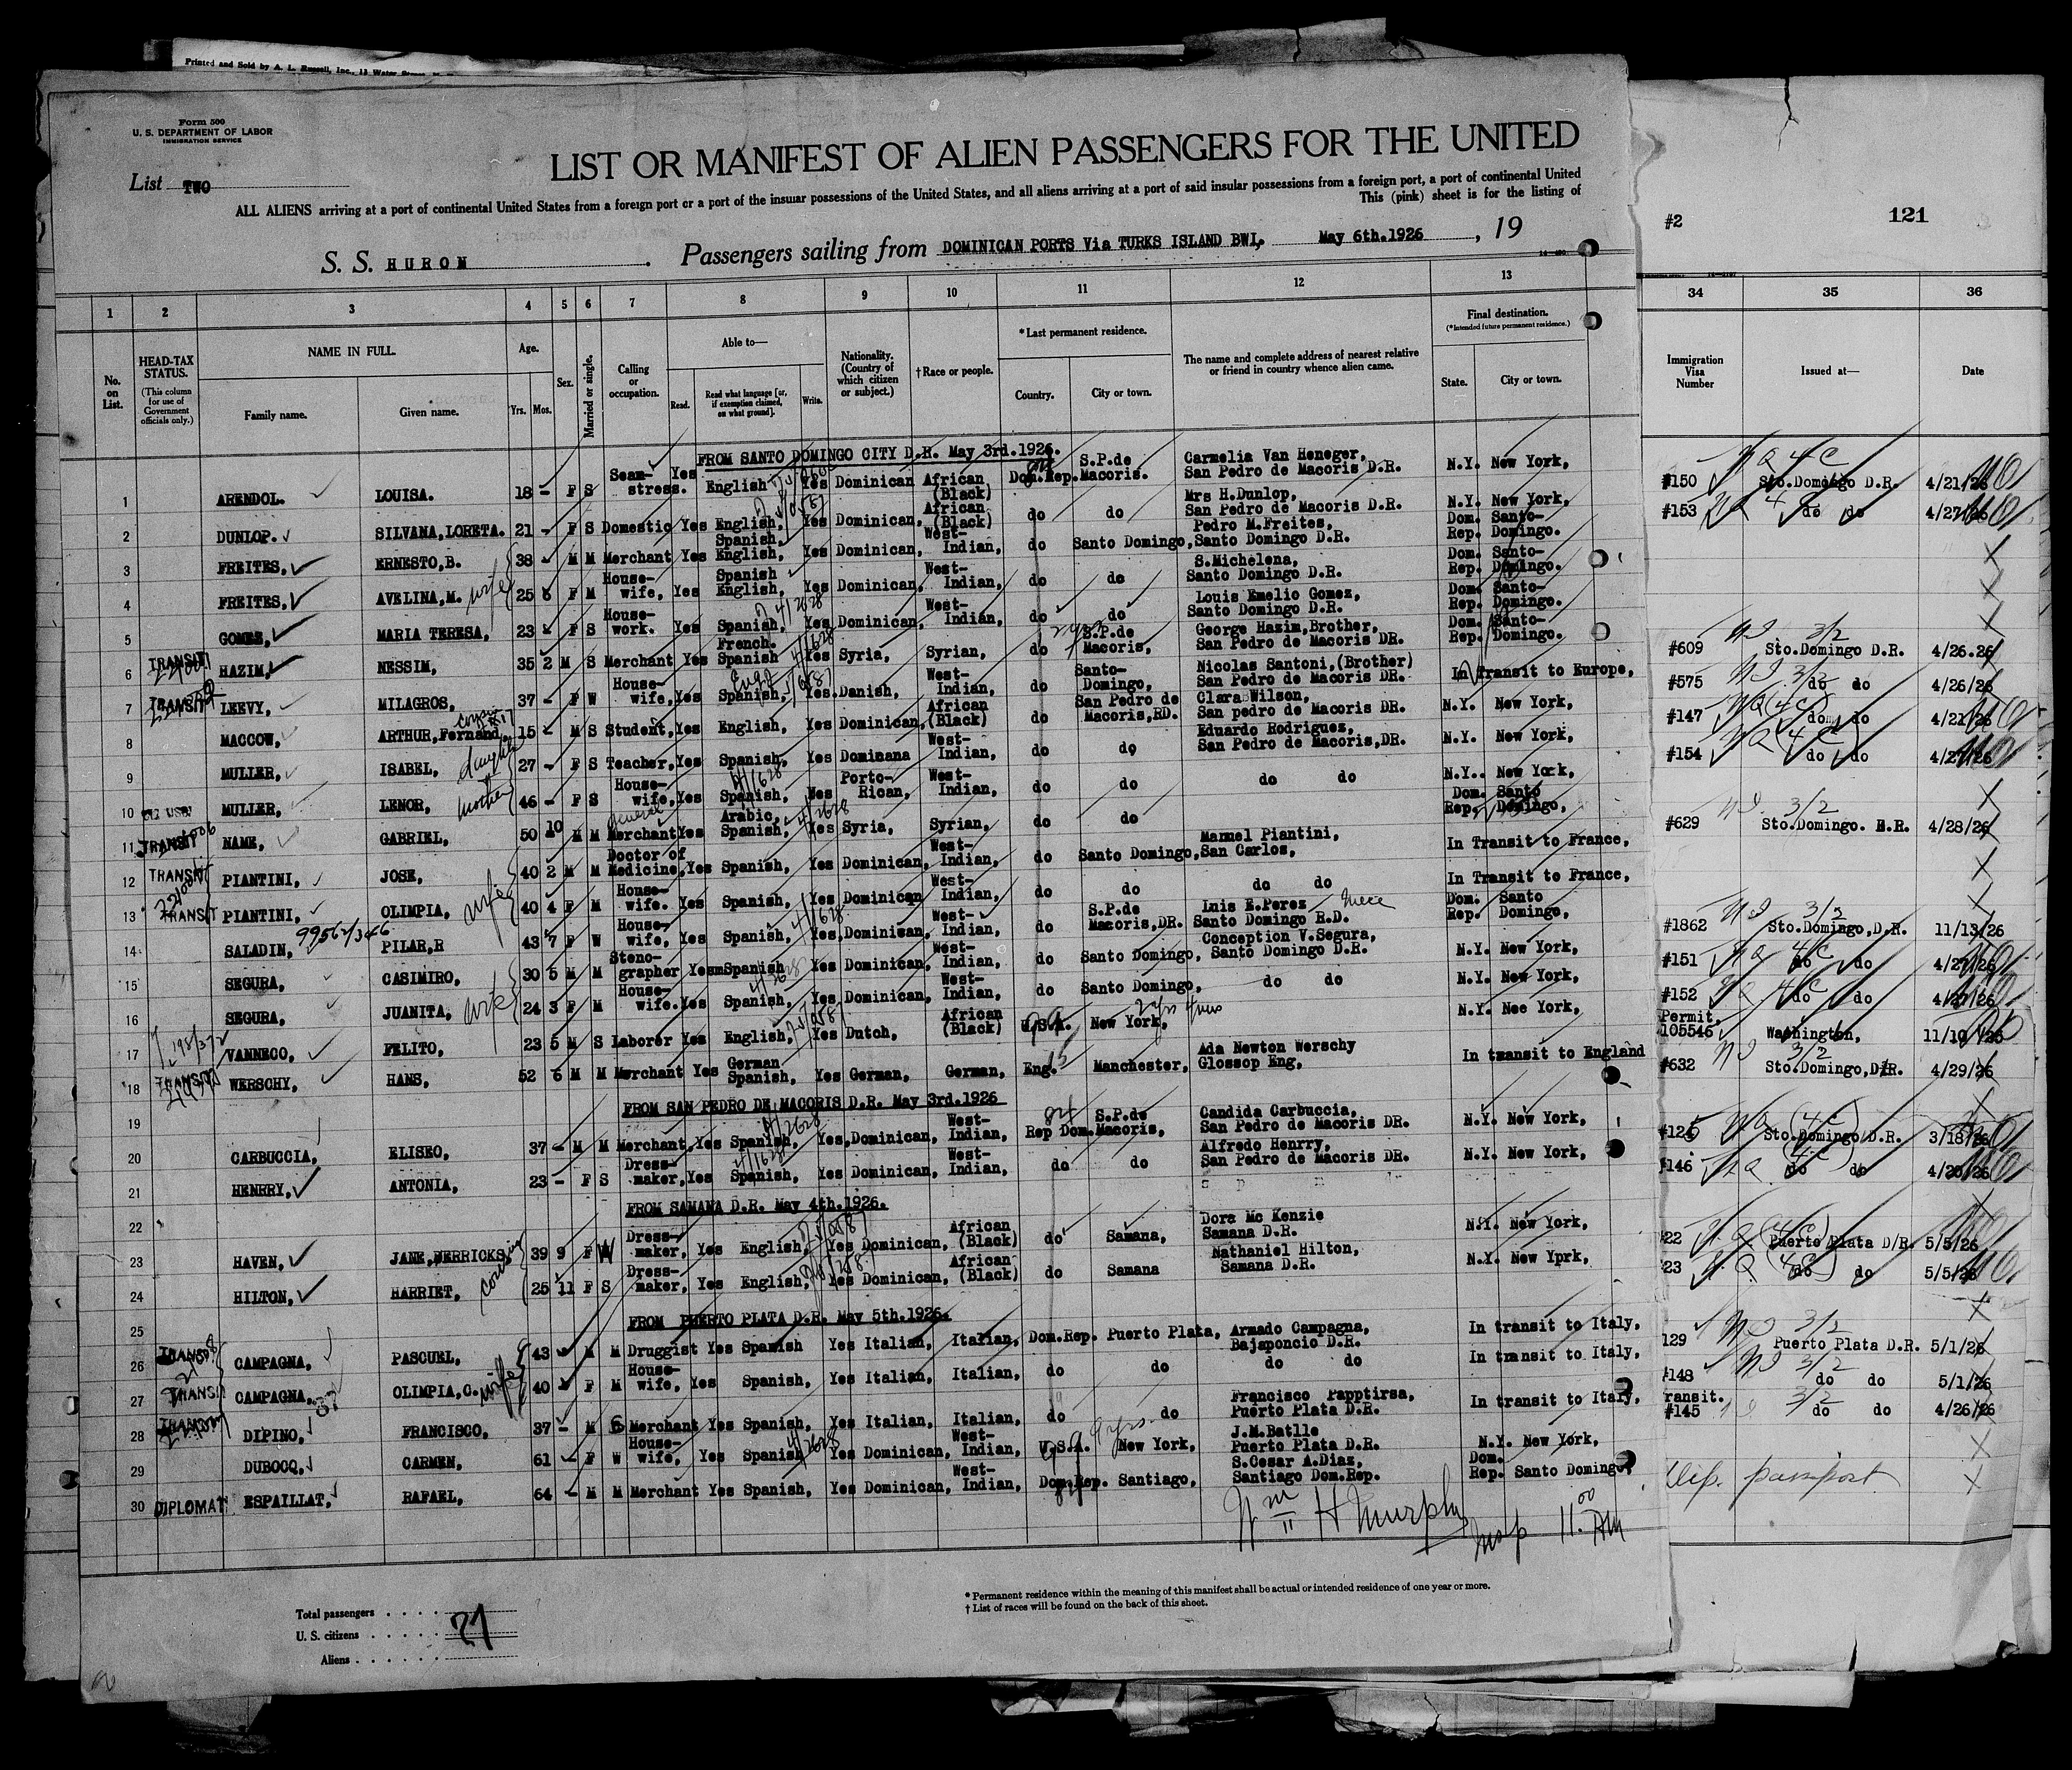 Printed and Sold by A. L. Russell, Inc., 13 Water
Form 500
U. S. DEPARTMENT OF LABOR
IMMIGRATION SERVICE
List TWO
LIST OR MANIFEST OF ALIEN PASSENGERS FOR THE UNITED
ALL ALIENS arriving at a port of continental United States from a foreign port or a port of the insular possessions of the United States, and all aliens arriving at a port of said insular possessions from a foreign port, a port of continental United
This (pink) sheet is for the listing of
#2 121
S. S. HURON Passengers sailing from DOMINICAN PORTS Via TURKS ISLAND BWI. May 6th.1926 , 19
1 2 3 4 5 6 7 8 9 10 11 12 13 34 35 36
No. on List.
HEAD-TAX STATUS.
(This column for use of Government officials only.)
NAME IN FULL.
Family name. Given name.
Age.
Yrs. Mos.
Sex.
Married or single.
Calling or occupation.
Able to—
Read. Read what language [or, if exemption claimed, on what ground]. Write.
Nationality. (Country of which citizen or subject.)
† Race or people.
* Last permanent residence.
Country. City or town.
The name and complete address of nearest relative or friend in country whence alien came.
Final destination.
(* Intended future permanent residence.)
State. City or town.
Immigration Visa Number
Issued at—
Date
FROM SANTO DOMINGO CITY D.R. May 3rd.1926.
1 ARENDOL. LOUISA. 18 - F S Seam-stress. Yes English Yes Dominican African (Black) Dom.Rep. S.P.de Macoris. Carmelia Van Heneger, San Pedro de Macoris D.R. N.Y. New York, #150 Sto.Domingo D.R. 4/21/26
2 DUNLOP. SILVANA,LORETA. 21 - F S Domestic Yes English, Yes Dominican, African (Black) do do Mrs H.Dunlop, San Pedro de Macoris D.R. N.Y. New York, #153 do do 4/27/26
3 FREITES, ERNESTO,B. 38 - M M Merchant Yes Spanish, English, Yes Dominican, West-Indian, do Santo Domingo, Pedro M.Freites, Santo Domingo D.R. Dom. Rep. Santo-Domingo.
4 FREITES, AVELINA,M. wife 25 6 F M House-wife, Yes Spanish English, Yes Dominican, West-Indian, do do S.Michelena, Santo Domingo D.R. Dom. Rep. Santo-Domingo.
5 GOMEZ, MARIA TERESA, 23 - F S House-work. Yes Spanish, Yes Dominican, West-Indian, do do Louis Emelio Gomez, Santo Domingo D.R. Dom. Rep. Santo-Domingo.
6 TRANSIT HAZIM, NESSIM, 35 2 M S Merchant Yes French. Spanish Yes Syria, Syrian, do S.P.de Macoris, George Hazim,Brother, San Pedro de Macoris DR. Dom. Rep. Santo-Domingo. #609 Sto.Domingo D.R. 4/26.26
7 TRANSIT LEEVY, MILAGROS, 37 - F W House-wife, Yes Spanish, Yes. Danish, West-Indian, do Santo-Domingo, Nicolas Santoni,(Brother) San Pedro de Macoris DR. In Transit to Europe, #575 do do 4/26/26
8 MACCOW, ARTHUR,Fernand. cousin 15 - M S Student, Yes English, Yes Dominican, African (Black) do San Pedro de Macoris,RD. Clara Wilson, San pedro de Macoris DR. N.Y. New York, #147 do do 4/21/26
9 MULLER, ISABEL, daughter 27 - F S Teacher, Yes Spanish, Yes Dominana West-Indian, do do Eduardo Rodriguez, San Pedro de Macoris,DR. N.Y. New York, #154 do do 4/27/26
10 MULLER, LENOR, mother 46 - F S House-wife, Yes Spanish, Yes Porto-Rican, West-Indian, do do do do N.Y. New York,
11 TRANSIT NAME, GABRIEL, 50 10 M M General Merchant Yes Arabic, Spanish, Yes Syria, Syrian, do do Dom. Rep. Santo Domingo, #629 Sto.Domingo. D.R. 4/28/26
12 TRANSIT PIANTINI, JOSE, 40 2 M M Doctor of Medicine, Yes Spanish, Yes Dominican, West-Indian, do Santo Domingo, Manuel Piantini, San Carlos, In Transit to France,
13 TRANSIT PIANTINI, OLIMPIA, wife 40 4 F M House-wife. Yes Spanish, Yes Dominican, West-Indian, do do do do In Transit to France,
14 SALADIN, PILAR,R 43 7 F W House-wife, Yes Spanish, Yes, Dominican, West-Indian, do S.P.de Macoris,DR. Luis E.Perez niece Santo Domingo R.D. Dom. Rep. Santo Domingo, #1862 Sto.Domingo,D.R. 11/13/26
15 SEGURA, CASIMIRO, 30 5 M M Steno-grapher Yes Spanish Yes Dominican, West-Indian, do Santo Domingo, Conception V.Segura, Santo Domingo D.R. N.Y. New York, #151 do do 4/27/26
16 SEGURA, JUANITA, wife 24 3 F M House-wife. Yes Spanish, Yes Dominican, West-Indian, do Santo Domingo, do do N.Y. New York, #152 do do 4/27/26
17 VANNECO, FELITO, 23 5 M S Laborer Yes English, Yes Dutch, African (Black) U.S.A. New York, N.Y. Nee York, Permit. 105546 Washington, 11/10/25
18 TRANSIT WERSCHY, HANS, 52 6 M M Merchant Yes German Spanish, Yes German, German, Eng. Manchester, Ada Newton Werschy Glossop Eng, In transit to England #632 Sto.Domingo,D.R. 4/29/26
19 FROM SAN PEDRO DE MACORIS D.R. May 3rd.1926
20 CARBUCCIA, ELISEO, 37 - M M Merchant, Yes Spanish, Yes, Dominican, West-Indian, Rep Dom. S.P.de Macoris, Candida Carbuccia, San Pedro de Macoris DR. N.Y. New York, Sto.Domingo D.R. 3/18/26
21 HENRRY, ANTONIA, 23 - F S Dress-maker, Yes Spanish, Yes Dominican, West-Indian, do do Alfredo Henrry, San Pedro de Macoris DR. N.Y. New York, #146 do do 4/20/26
22 FROM SAMANA D.R. May 4th.1926.
23 HAVEN, JANE,DERRICKS, 39 9 F W Dress-maker, Yes English, Yes Dominican, African (Black) do Samana, Dora Mc Kenzie Samana D.R. N.Y. New York, #22 Puerto Plata D/R. 5/5/26
24 HILTON, HARRIET, cousin 25 11 F S Dress-maker, Yes English, Yes Dominican, African (Black) do Samana Nathaniel Hilton, Samana D.R. N.Y. New Yprk, 23 do do 5/5/26
25 FROM PUERTO PLATA D.R. May 5th.1926.
26 TRANSIT CAMPAGNA, PASCUEL, 43 - M M Druggist Yes Spanish Yes Italian, Italian, Dom.Rep. Puerto Plata, Armado Campagna, Bajaponcio D.R. In transit to Italy, 129 Puerto Plata D.R. 5/1/26
27 TRANSIT CAMPAGNA, OLIMPIA,C. wife 40 - F M House-wife, Yes Spanish, Yes Italian, Italian, do do do do In transit to Italy, #148 do do 5/1/26
28 TRANSIT DIPINO, FRANCISCO, 37 - M Merchant Yes Spanish, Yes Italian, Italian, do do Francisco Papptirsa, Puerto Plata D.R. In transit to Italy, Transit. #145 do do 4/26/26
29 DUBOCQ, CARMEN, 61 - F W House-wife, Yes Spanish Yes Dominican, West-Indian, U.S.A. New York, J.M.Batlle Puerto Plata D.R. N.Y. New York,
30 DIPLOMAT ESPAILLAT, RAFAEL, 64 - M M Merchant Yes Spanish, Yes Dominican, West-Indian, Dom.Rep. Santiago, S.Cesar A.Diaz, Santiago Dom.Rep. Dom. Rep. Santo Domingo, Dip. passport
Wm H Murphy Insp 11.00 AM
* Permanent residence within the meaning of this manifest shall be actual or intended residence of one year or more.
† List of races will be found on the back of this sheet.
Total passengers . . . .
U. S. citizens . . . . . 27
Aliens . . . . . .